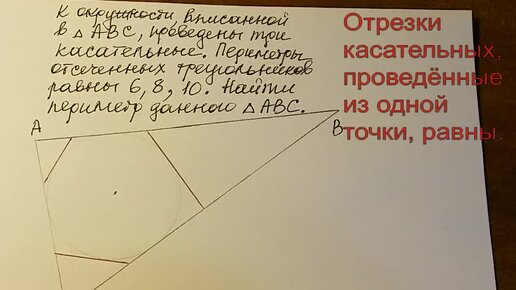 К окружности, вписанной
в △ABC, проведены три
касательные. Периметры
отсечённых треугольников
равны 6, 8, 10. Найти
периметр данного △ABC.
Отрезки
касательных,
проведённые
из одной
точки, равны.
A
B